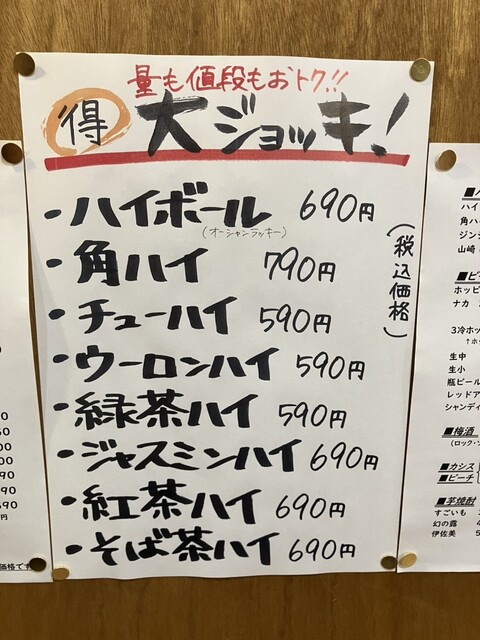 量も値段もおトク!!
得 大ジョッキ!
・ハイボール 690円
(オーシャンラッキー)
・角ハイ 790円
・チューハイ 590円
・ウーロンハイ 590円
・緑茶ハイ 590円
・ジャスミンハイ 690円
・紅茶ハイ 690円
・そば茶ハイ 690円
(税込価格)
ハイ
角ハ
ジンジ
山崎
ホッピ
ナカ
3冷ホッ
生中
生小
瓶ビール
レッドア
シャンディ
■梅酒
(ロック・ソ
■カシス
■ピーチ
■芋焼酎
すごいも
幻の露
伊佐美 5
価格です